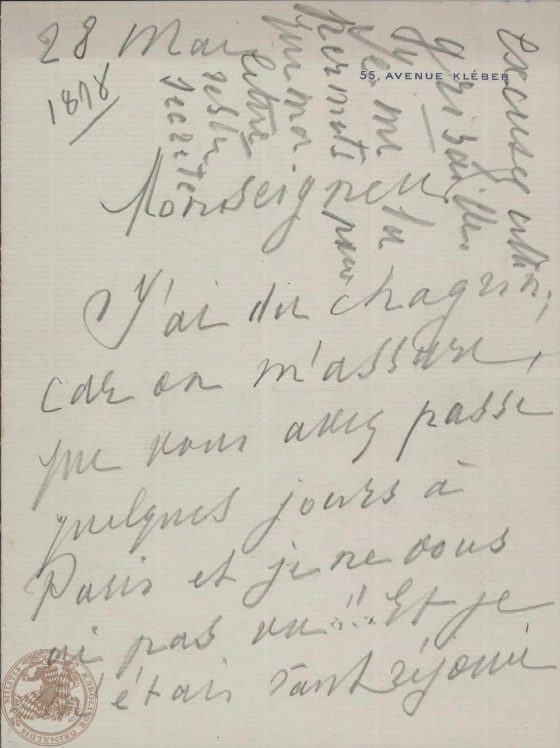 28 Mai
1878
55, AVENUE KLÉBER
Monseigneur
J'ai du chagrin,
car on m'assure,
que vous avez passé
quelques jours à
Paris et je ne vous
ai pas vu!!... Et je
m'étais tant réjouie
Excusez
permets pour
que ma
lettre
reste
secrète